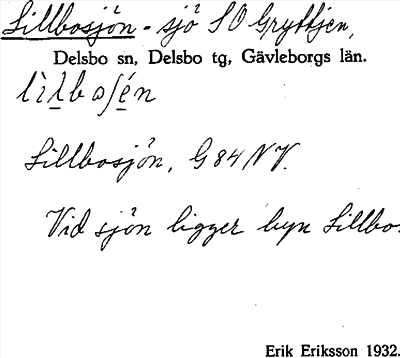 Lillbosjön - sjö SO Gryttjen,
Delsbo sn, Delsbo tg, Gävleborgs län.
Lillbosjön, G 84 NV.
Vid sjön ligger byn Lillbo.
Erik Eriksson 1932.